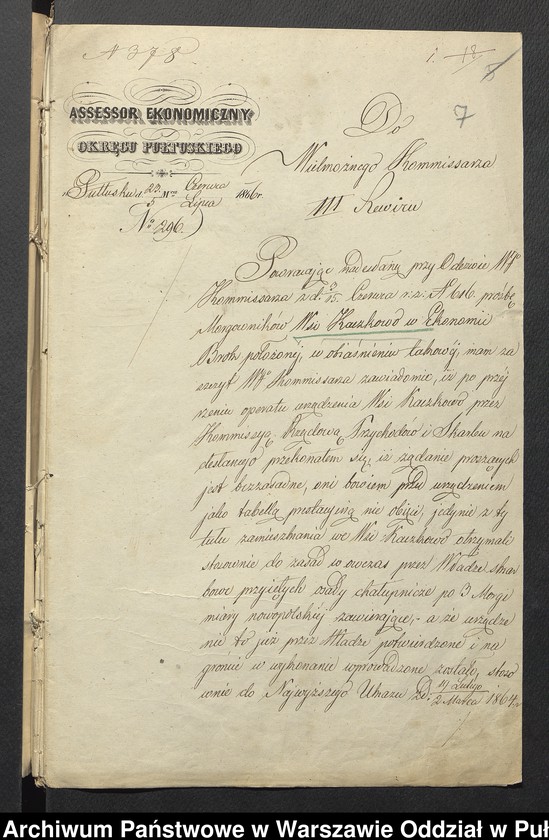 N 378
7
ASSESSOR EKONOMICZNY
OKRĘGU PUŁTUSKIEGO
Pułtusku d. 23 Czerwca
5 Lipca 1866 r.
No 296
Do
Wielmożnego Kommissarza
III Rewiru
Powracając nadesłaną przy Odezwie Wgo
Kommissarza z d. 3/15 Czerwca r. z. N 616 prośbę
Morgowników Wsi Kaczkowo w Ekonomii
Brok położonej, w objaśnieniu takowej, mam za
szczyt Wgo Kommissarza zawiadomić, iż po przej
rzeniu operatu urządzenia Wsi Kaczkowo przez
Kommissyę Rządową Przychodów i Skarbu na
desłanego przekonałem się, iż żądanie proszących
jest bezzasadne, oni bowiem przed urządzeniem
jako tabellą prestacyjną nie objęci, jedynie z ty
tułu zamieszkania we Wsi Kaczkowo otrzymali
stosownie do zasad wowczas przez Władze skar
bowe przyjętych osady chałupnicze po 3 Morgi
miary nowopolskiej zawierające, a że urządze
nie to już przez Władze potwierdzone i na
gruncie w wykonanie wprowadzone zostało, stoso
wnie do Najwyższego Ukazu z d. 19 Lutego
2 Marca 1864 r.
Archiwum Państwowe w Warszawie Oddział w Puł